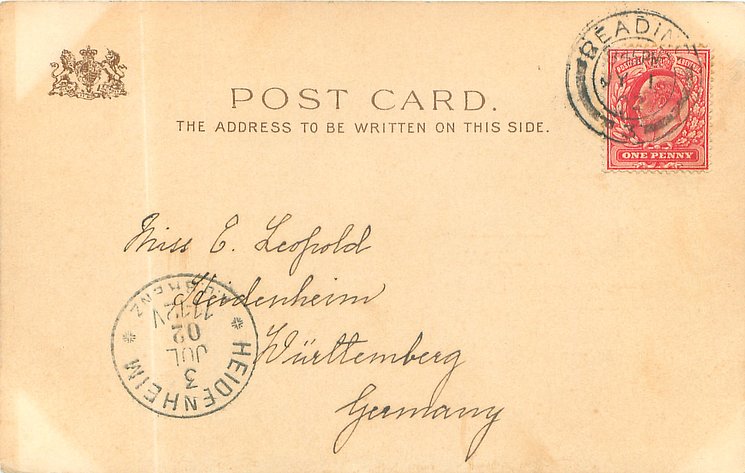 POST CARD.
THE ADDRESS TO BE WRITTEN ON THIS SIDE.
READING
ONE PENNY
Miss E. Leopold
Heidenheim
Württemberg
Germany
HEIDENHEIM
3
JUL
02
11-12V
BRENZ